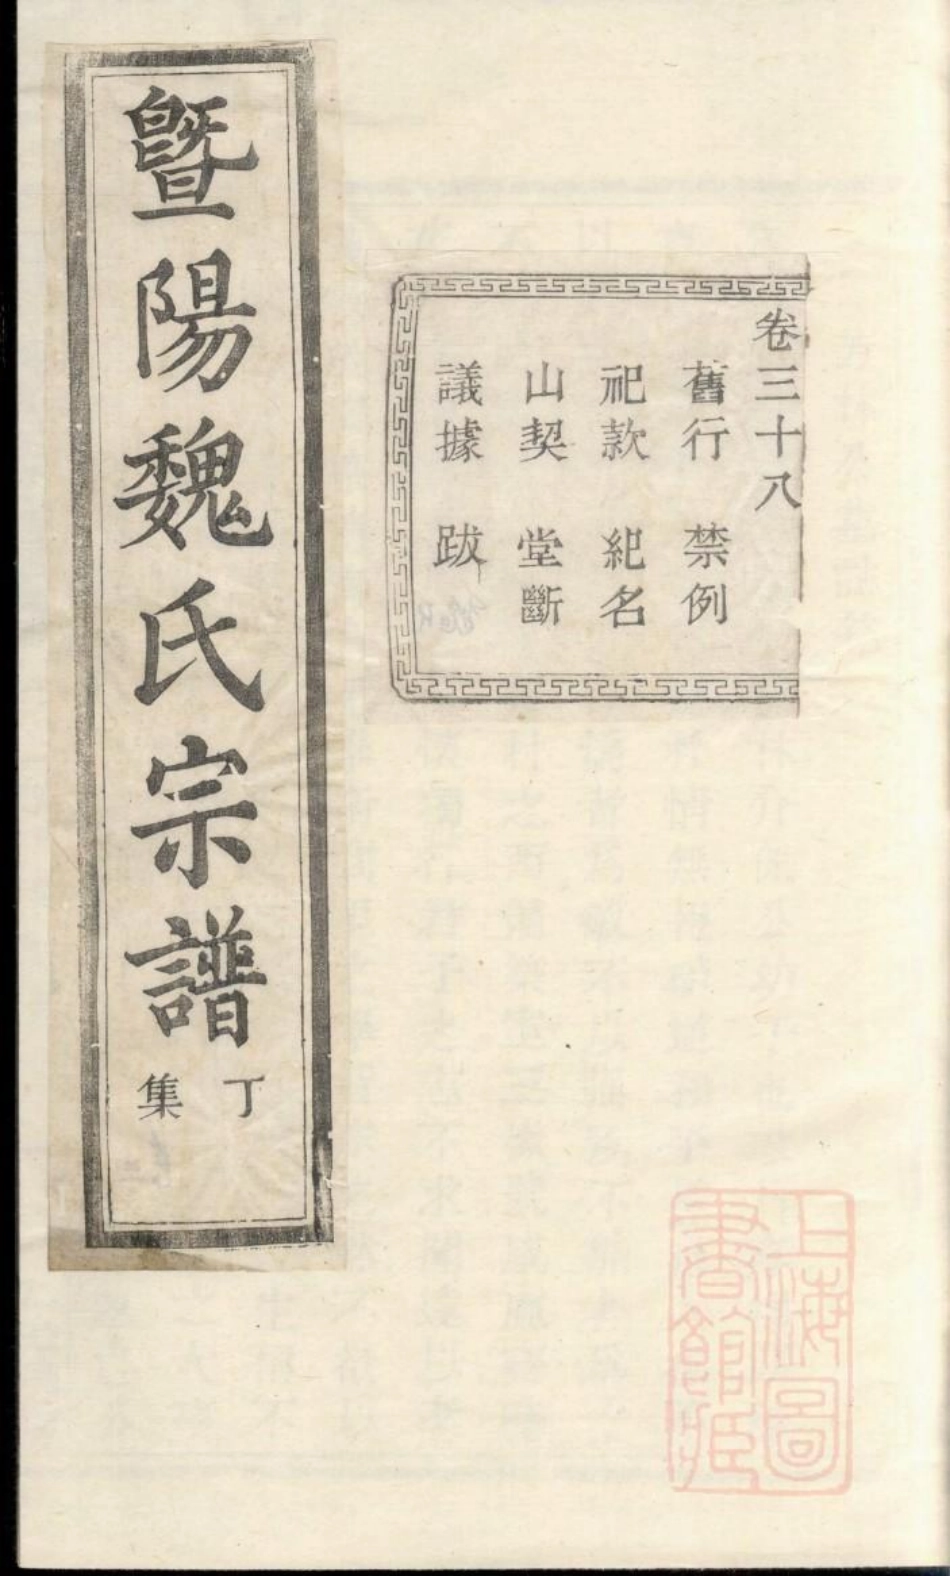 卷三十八
舊行 禁例
祀款 紀名
山契 堂斷
議據 跋
暨陽魏氏宗譜
丁集
上海圖
書館藏